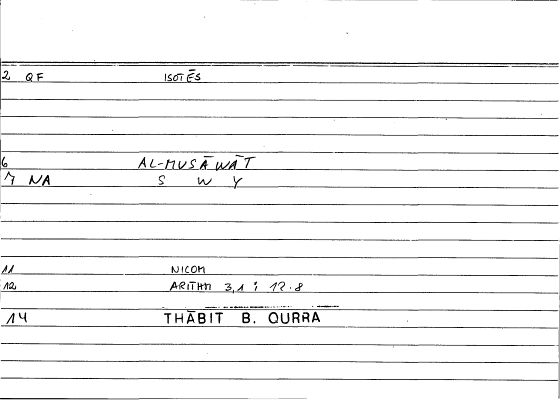 2 QF ISOTĒS
6 AL-MUSĀWĀT
7 NA S W Y
11 NICOM
12 ARITHM 3,1 ; 12.8
14 THĀBIT B. QURRA